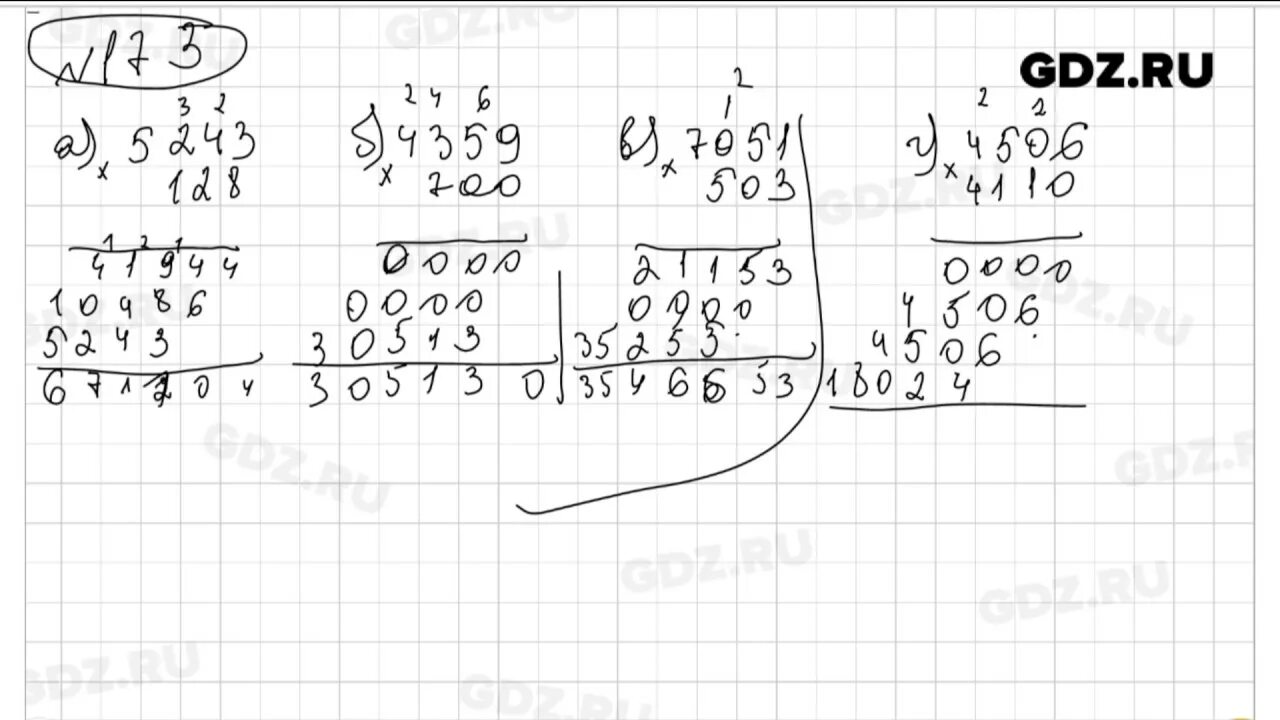 №173
GDZ.RU
3 2
а) × 5243
128
1 2 1
41944
10486
5243
671204
2 4 6
б) × 4359
700
0000
0000
30513
305130
2
1
в) × 7051
503
21153
0000
35253
3546653
2 2
г) × 4506
4110
0000
4506
4506
18024